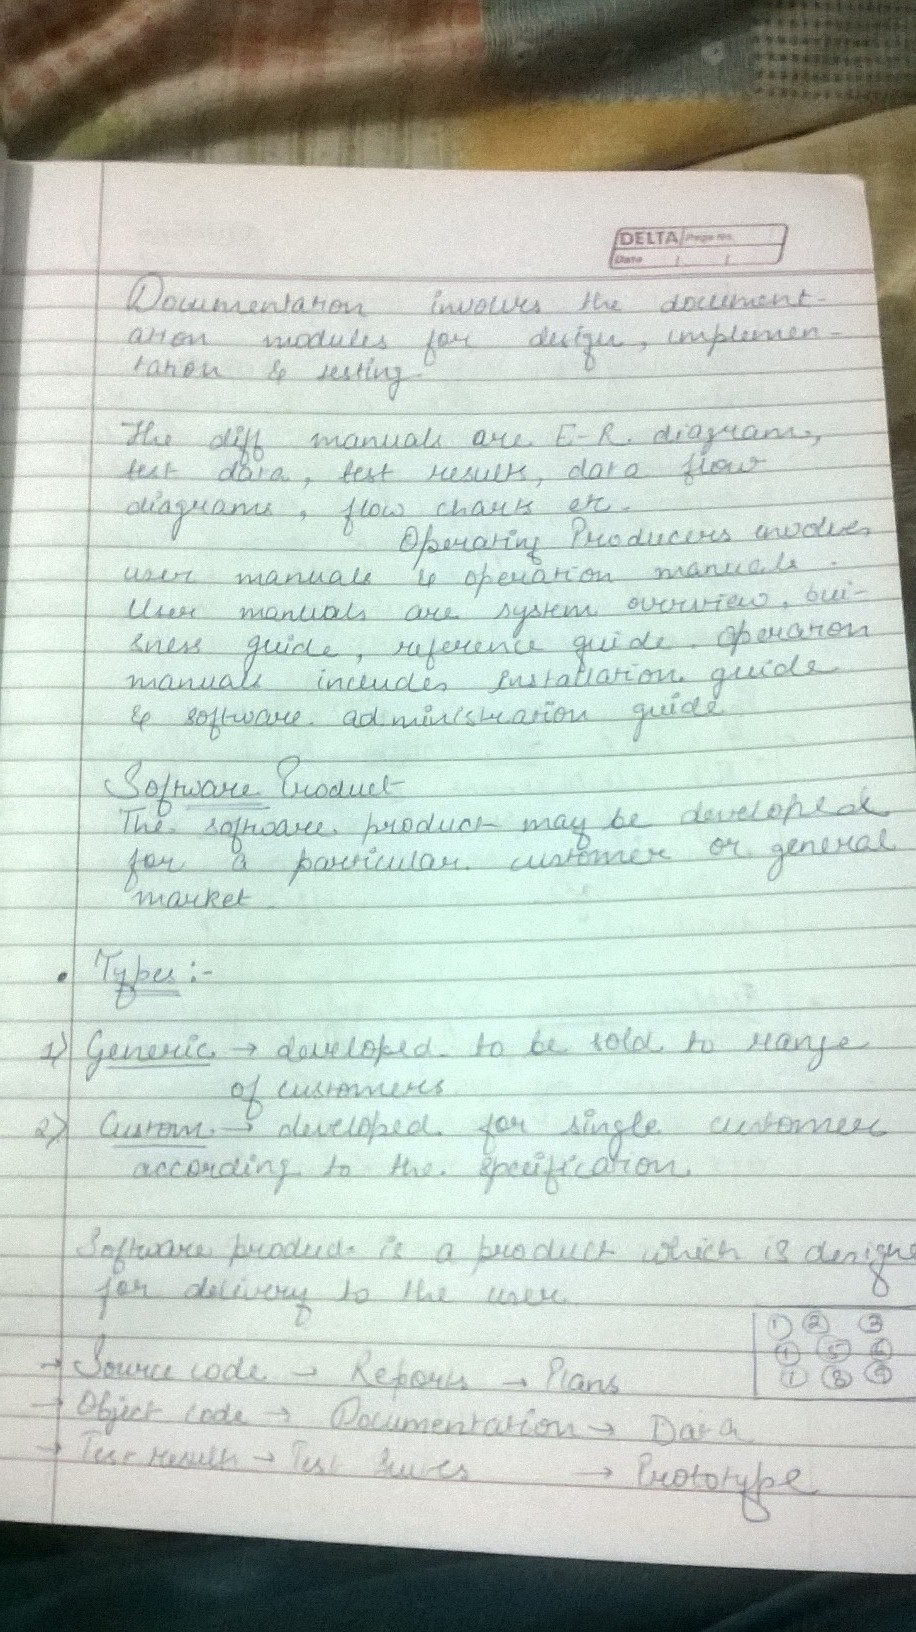 DELTA Page No.
Date / /
Documentation involves the document-
ation modules for design, implemen-
tation & testing.
The diff manuals are E-R diagrams,
test data, test results, data flow
diagrams, flow charts etc.
Operating Producers involves
user manuals & operation manuals.
User manuals are system overview, bui-
sness guide, reference guide. Operation
manuals includes Installation guide
& software administration guide
Software Product
The software product may be developed
for a particular customer or general
market.
• Types :-
1) Generic → developed to be sold to range
of customers
2) Custom → developed for single customer
according to the specification.
Software product is a product which is designe
for delivery to the user
① ② ③
→ Source code → Reports → Plans
→ Object code → Documentation → Data
→ Test results → Test Suites → Prototype